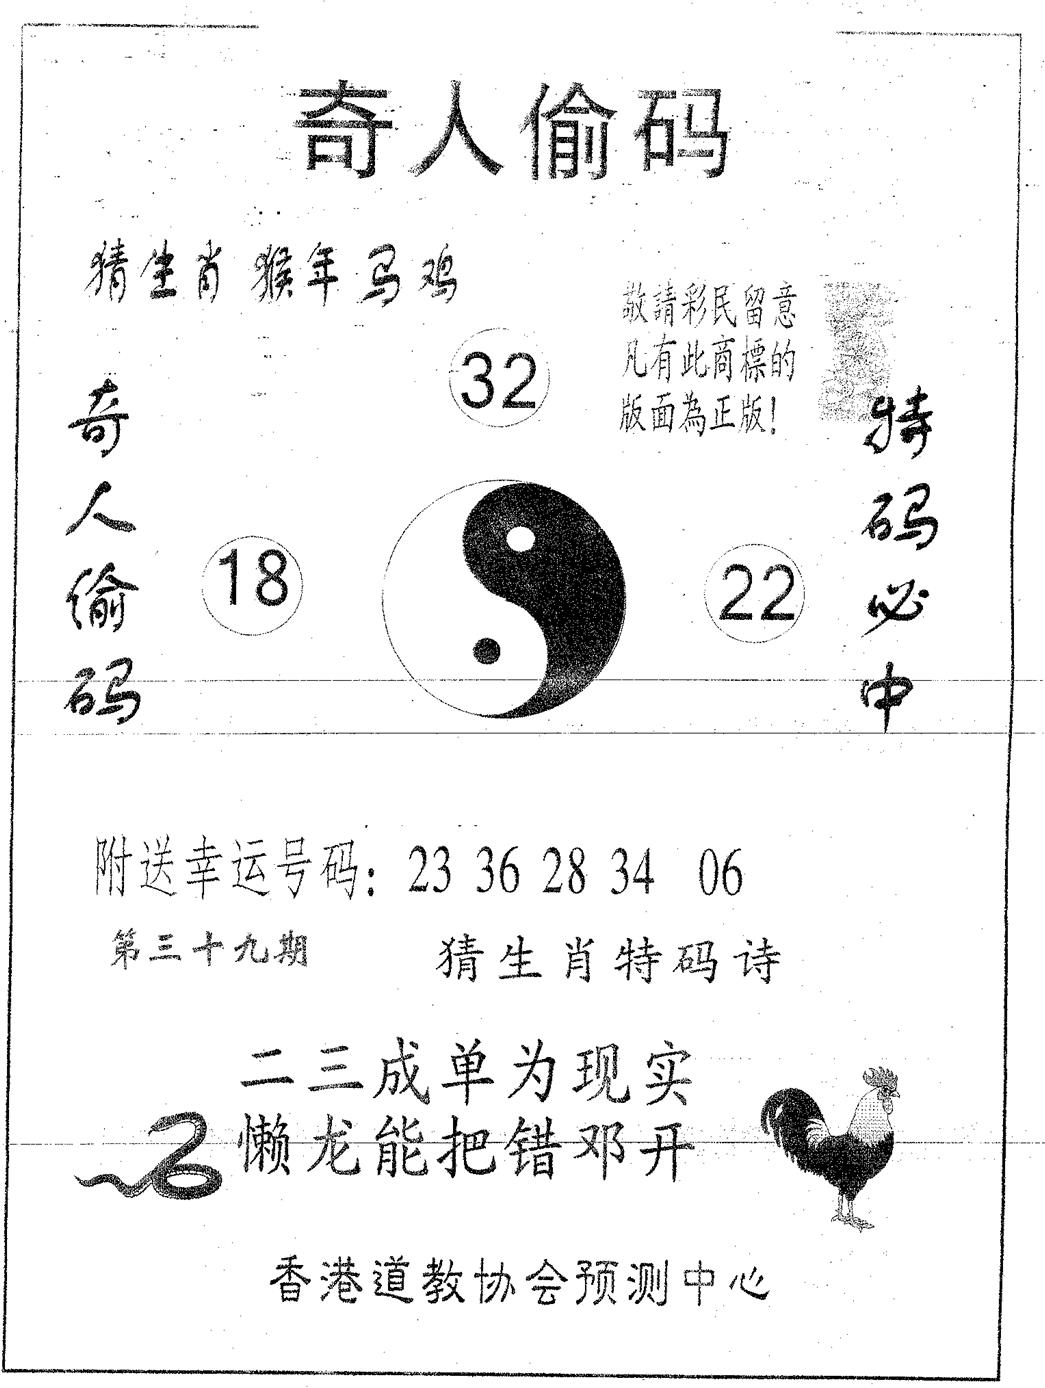 奇人偷码
猜生肖 猴年马鸡
敬請彩民留意
凡有此商標的
版面為正版!
32
奇人偷码
18
22
特码必中
附送幸运号码: 23 36 28 34 06
第三十九期
猜生肖特码诗
二三成单为现实
懒龙能把错邓开
香港道教协会预测中心